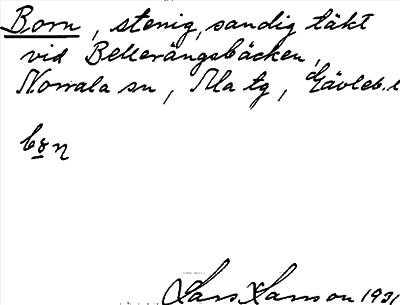 Born, stenig, sandig täkt
vid Bellerängsbäcken,
Norrala sn, Ala tg, Gävleb. l
bɷn
Lars Larsson 1931